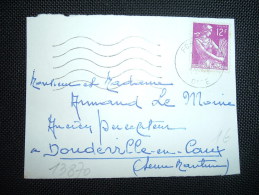 12F
Monsieur et Madame
Armand Le Moine
Ancien Percepteur
à Doudeville-en-Caux
(Seine Maritime)